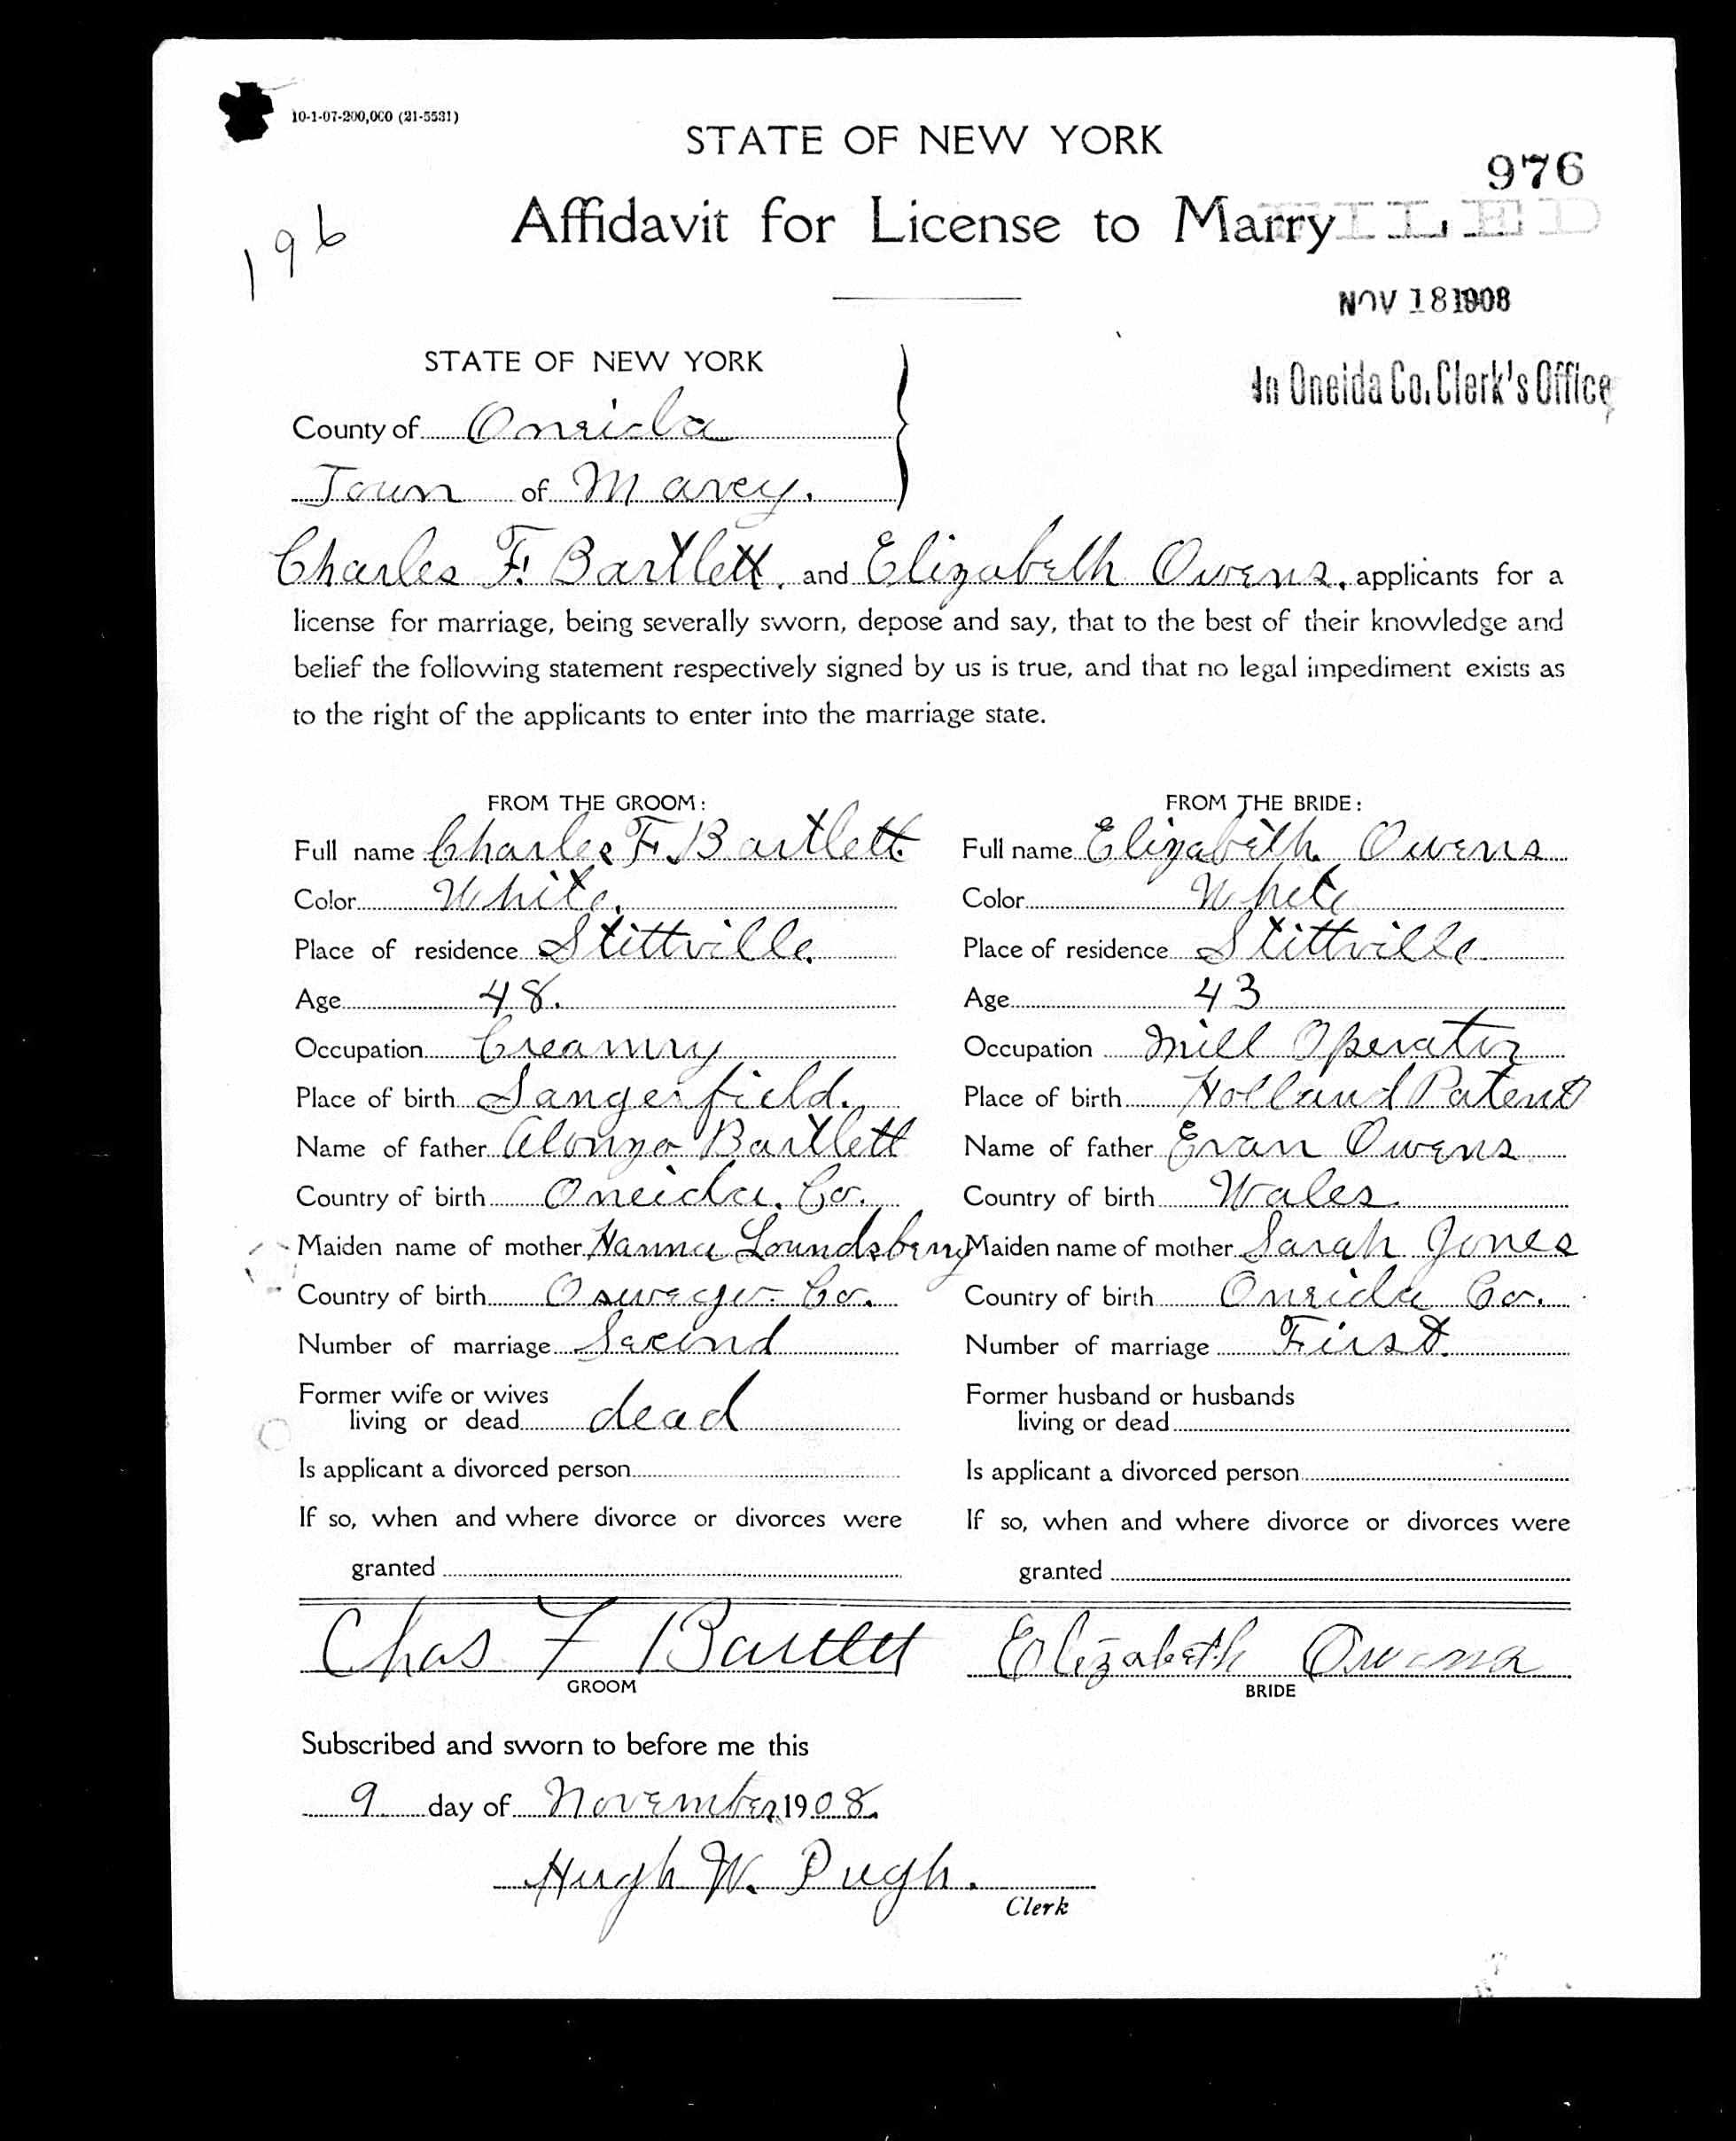 10-1-07-200,000 (21-5531)
STATE OF NEW YORK
976
196
Affidavit for License to Marry
FILED
NOV 18 1908
STATE OF NEW YORK
In Oneida Co. Clerk's Office
County of Oneida
Town of Marcy.
Charles F. Bartlett. and Elizabeth Owens, applicants for a
license for marriage, being severally sworn, depose and say, that to the best of their knowledge and
belief the following statement respectively signed by us is true, and that no legal impediment exists as
to the right of the applicants to enter into the marriage state.
FROM THE GROOM:
Full name Charles F. Bartlett.
Color White.
Place of residence Stittville.
Age 48.
Occupation Creamry
Place of birth Sangerfield.
Name of father Alonzo Bartlett
Country of birth Oneida. Co.
Maiden name of mother Hanna Loundsberry
Country of birth Oswego Co.
Number of marriage Second
Former wife or wives
living or dead dead
Is applicant a divorced person
If so, when and where divorce or divorces were
granted
Chas F Bartlett
GROOM
FROM THE BRIDE:
Full name Elizabeth Owens
Color White
Place of residence Stittville
Age 43
Occupation Mill Operator
Place of birth Holland Patent
Name of father Evan Owens
Country of birth Wales
Maiden name of mother Sarah Jones
Country of birth Oneida Co.
Number of marriage First.
Former husband or husbands
living or dead
Is applicant a divorced person
If so, when and where divorce or divorces were
granted
Elizabeth Owens
BRIDE
Subscribed and sworn to before me this
9 day of November 1908.
Hugh W. Pugh.
Clerk